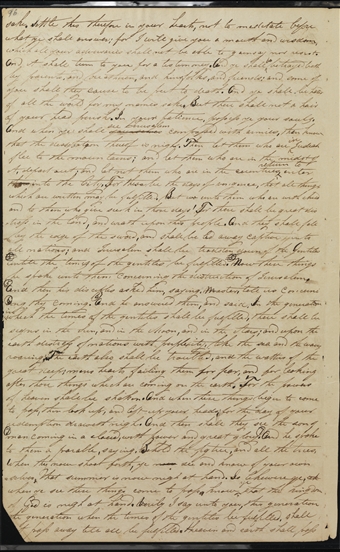 96
sake, settle this therefore in your hearts, not to meditate before
what ye shall answer; for I will give you a mouth and wisdom,
which all your adversaries shall not be able to gainsay nor resist.
And it shall turn to you for a testimony. And ye shall be betrayed
by parents, and brethren, and kindsfolks, and friends; and some of
you shall they cause to be put to death. And ye shall be hated
of all the world for my names sake. But there shall not a hair
of your head perish. In your patience, possess ye your souls.
And when ye shall see Jerusalem compassed with armies, then know
that the desolation thereof is nigh. Then let them who are in Judea
flee to the mountains; and let them who are in the midst of
it, depart out; and let not them who are in the countries, return to enter
into the city. For these be the days of vengeance, that all things
which are written may be fulfilled. But wo unto them who are with child
and to them who give suck in those days! For there shall be great dis
tress in the land, and wrath upon this people. And they shall fall
by the edge of the sword, and shall be led away captive into
all nations; and Jerusalem shall be trodden down of the Gentiles
untill the times of the gentiles be fulfilled. Now these things
he spake unto them concerning the destruction of Jerusalem.
And then his disciples asked him, saying, Master, tell us concern
ing thy coming? And he answered them, and said, In the generation
in which the times of the gentiles shall be fulfilled, there shall be
signs in the sun, and in the Moon, and in the stars; and upon the
earth distress of nations with perplexity, like the sea and the waves
roaring. The earth also shall be troubled, and the waters of the
great deep; mens hearts failing them for fear, and for looking
after those things which are coming on the earth. For the powers
of heaven shall be shaken. And when these things begin to come
to pass, then look up, and lift up your heads, for the day of your
redemption draweth nigh. And then shall they see the son of
man coming in a cloud, with power and great glory. And he spake
to them a parable, saying, Behold the figtree, and all the trees,
when they now shoot forth, ye see and know of your own
selves, that summer is now nigh at hand. So likewise ye,
when ye see these things come to pass, know that the kingdom
of God is nigh at hand. Verily I say unto you, this generation,
the generation when the times of the gentiles be fulfilled, shall
not pass away till all be fulfilled. Heaven and earth shall pass